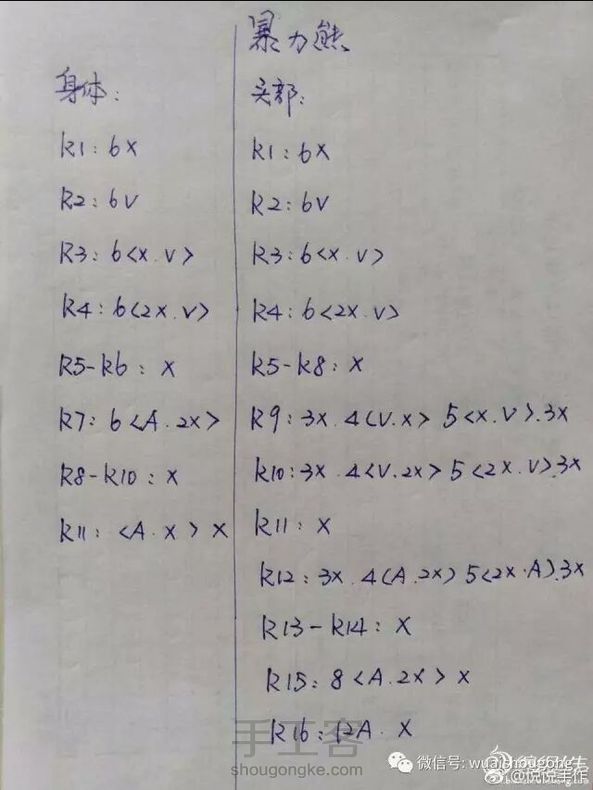 暴力熊
身体:
R1:6X
R2:6V
R3:6<X.V>
R4:6<2X.V>
R5-R6:X
R7:6<A.2X>
R8-R10:X
R11:<A.X>X
头部:
R1:6X
R2:6V
R3:6<X.V>
R4:6<2X.V>
R5-R8:X
R9:3X.4(V.X>5<X.V>.3X
R10:3X.4<V.2X>5<2X.V>.3X
R11:X
R12:3X.4(A.2X)5<2X.A).3X
R13-R14:X
R15:8<A.2X>X
R16:12A.X
手工客
shougongke.com
微信号:wuaishougong
@悦悦手作